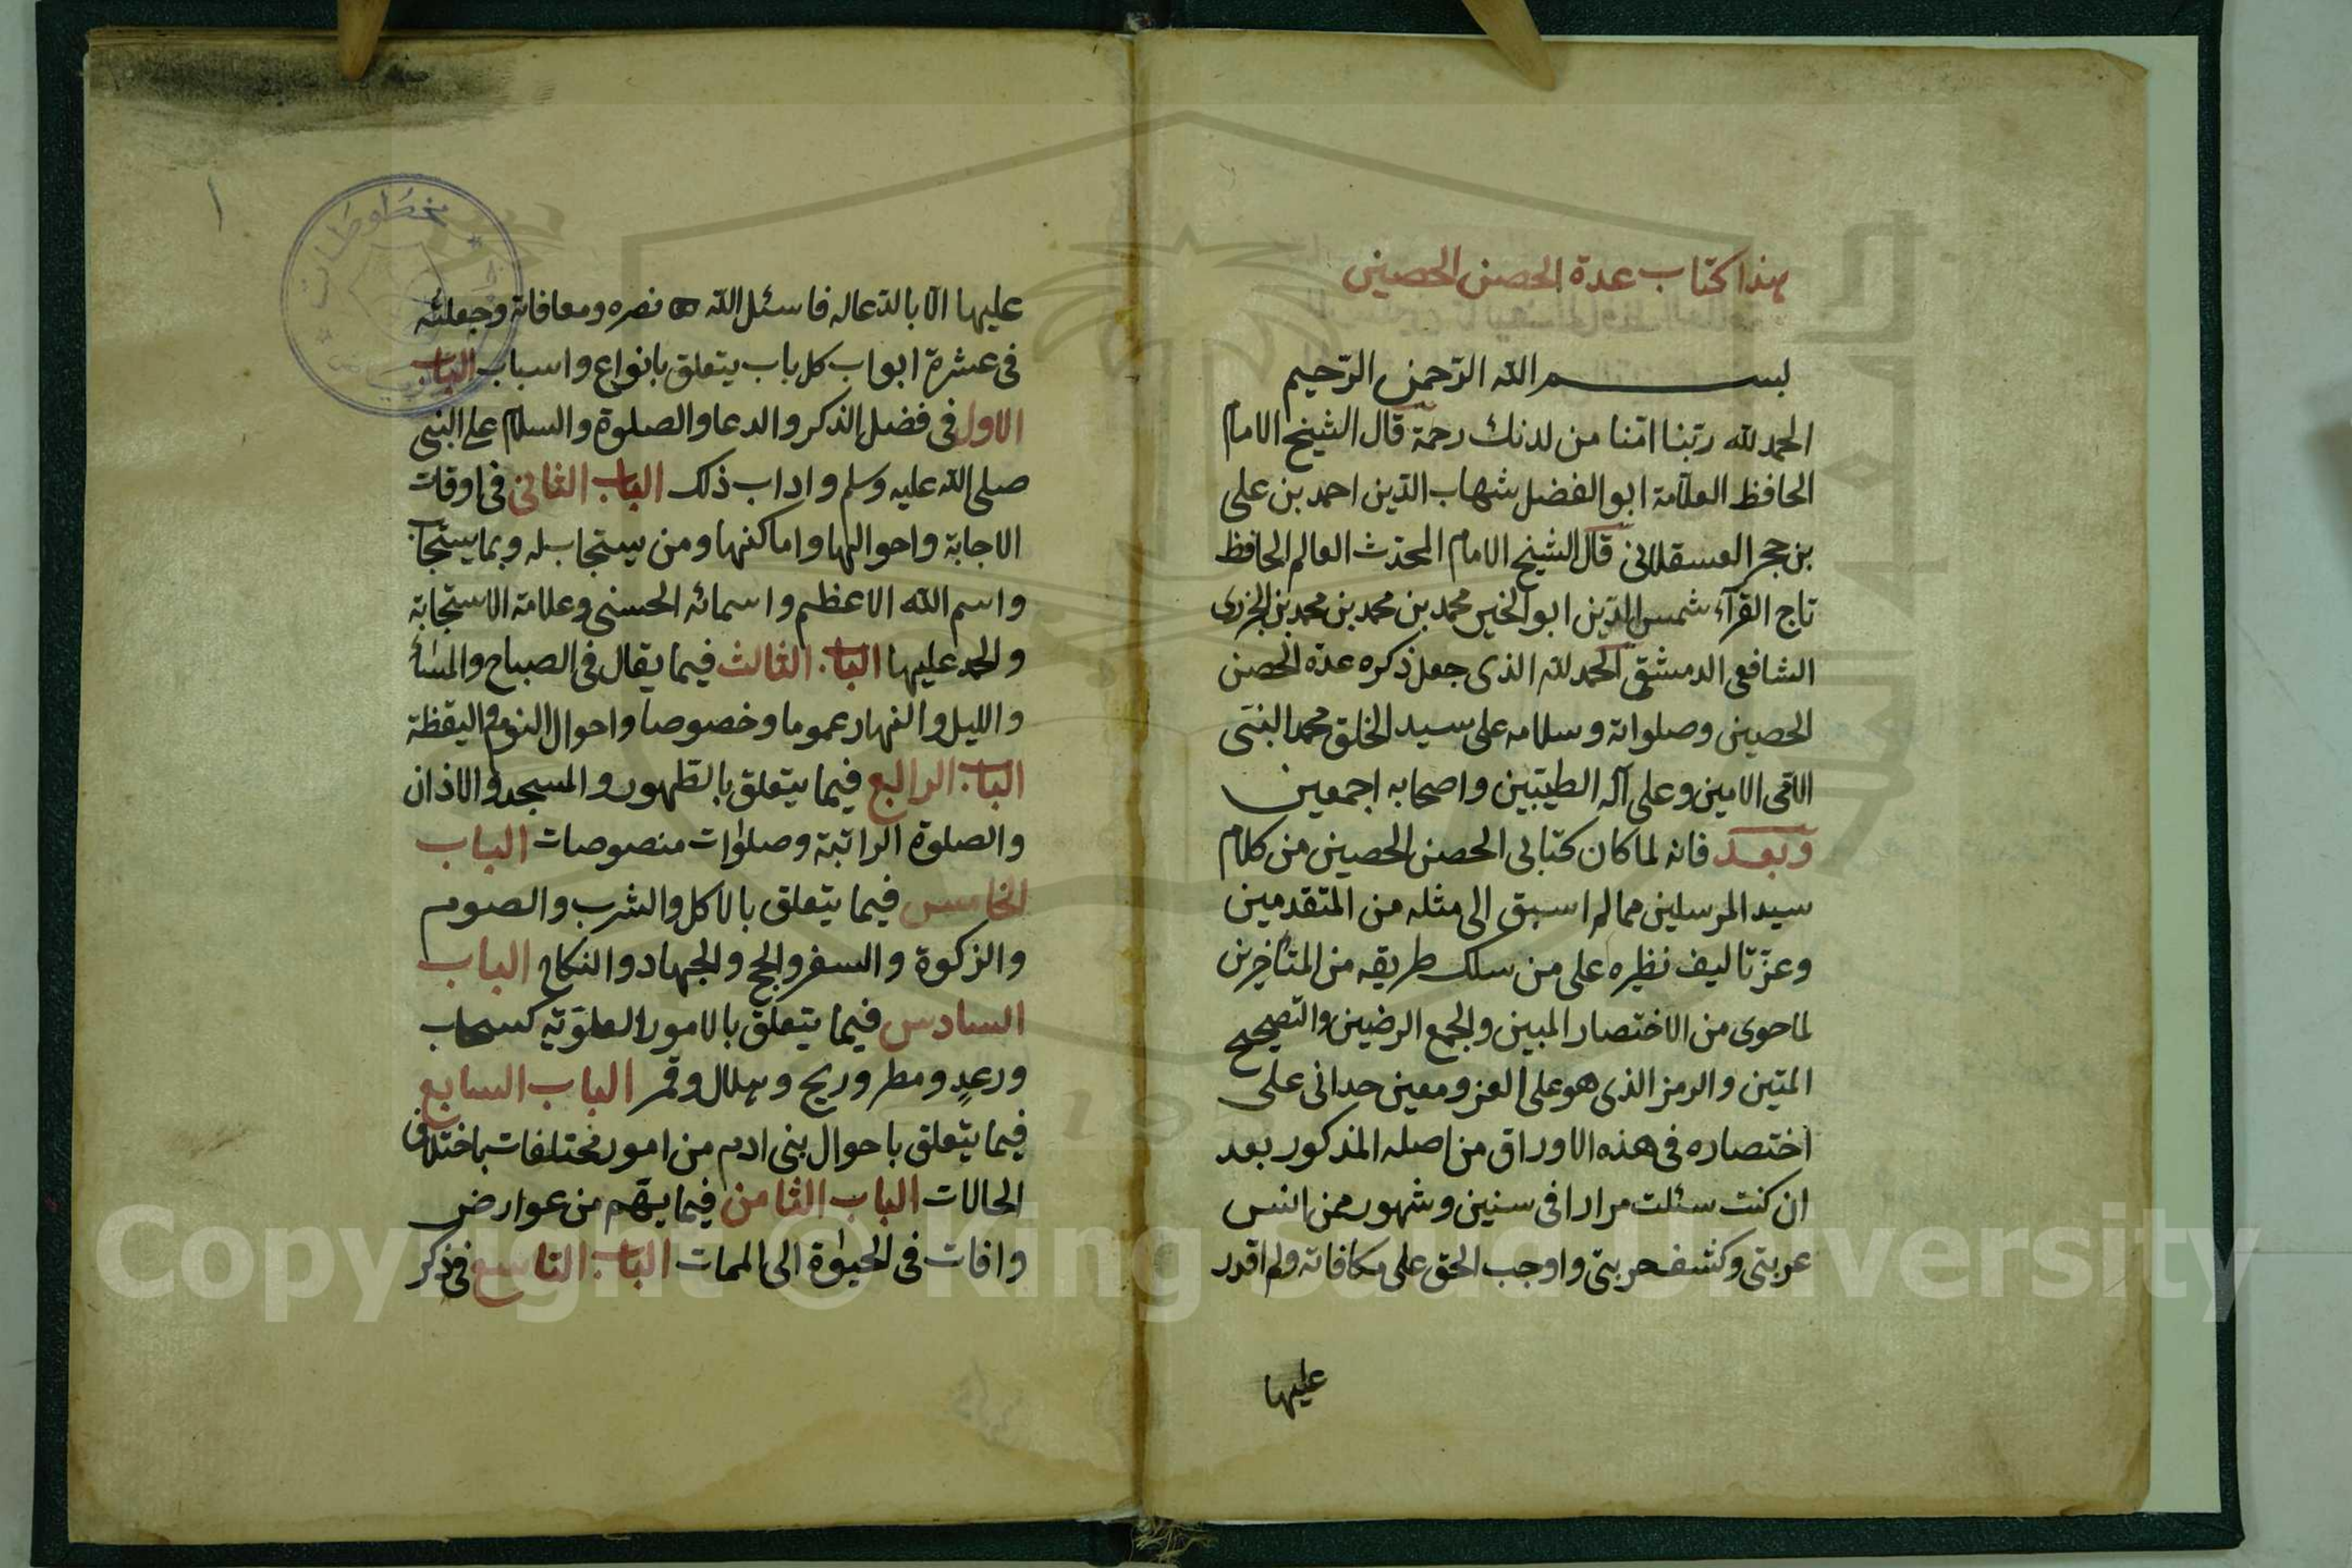 هذا كتاب عدة الحصن الحصين
بسم الله الرحمن الرحيم
الحمد لله ربنا اتنا من لدنك رحمة قال الشيخ الامام
الحافظ العلامة ابو الفضل شهاب الدين احمد بن على
بن حجر العسقلانى قال الشيخ الامام المحدث العالم الحافظ
تاج القرآء شمس الدين ابو الخير محمد بن محمد بن محمد بن الجزرى
الشافعى الدمشقى الحمد لله الذى جعل ذكره عدة الحصن
الحصين وصلواته وسلامه على سيد الخلق محمد النبى
الامى الامين وعلى آله الطيبين واصحابه اجمعين
وبعد فانه لما كان كتابى الحصن الحصين من كلام
سيد المرسلين مما لم اسبق الى مثله من المتقدمين
وعز تاليف نظيره على من سلك طريقه من المتأخرين
لما حوى من الاختصار المبين والجمع الرضين والتصحيح
المتين والرمز الذى هو على العز ومعين حدانى على
اختصاره فى هذه الاوراق من اصله المذكور بعد
ان كنت سئلت مرارا فى سنين وشهور ممن انس
عربتى وكشف حربتى واوجب الحق على مكافاته ولم اقدر
عليها
عليها الا بالدعاله فاسئل الله نصره ومعافاته وجعلته
فى عشرة ابواب كل باب يتعلق بانواع واسباب الباب
الاول فى فضل الذكر والدعا والصلوة والسلام على النبى
صلى الله عليه وسلم واداب ذلك الباب الثانى فى اوقات
الاجابة واحوالها واماكنها ومن يستجاب له وبما يستجاب
واسم الله الاعظم واسمائه الحسنى وعلامة الاستجابة
والحمد عليها الباب الثالث فيما يقال فى الصباح والمسأ
والليل والنهار عموما وخصوصا واحوال النوم واليقظة
الباب الرابع فيما يتعلق بالطهور والمسجد والاذان
والصلوة الراتبة وصلوات منصوصات الباب
الخامس فيما يتعلق بالاكل والشرب والصوم
والزكوة والسفر والحج والجهاد والنكاح الباب
السادس فيما يتعلق بالامور العلوية كسحاب
ورعد ومطر وريح وهلال وقمر الباب السابع
فيما يتعلق باحوال بنى ادم من امور مختلفات باختلاف
الحالات الباب الثامن فيما يهم من عوارض
وافات فى الحيوة الى الممات الباب التاسع فى ذكر
مخطوطات
١
Copyright © King Saud University